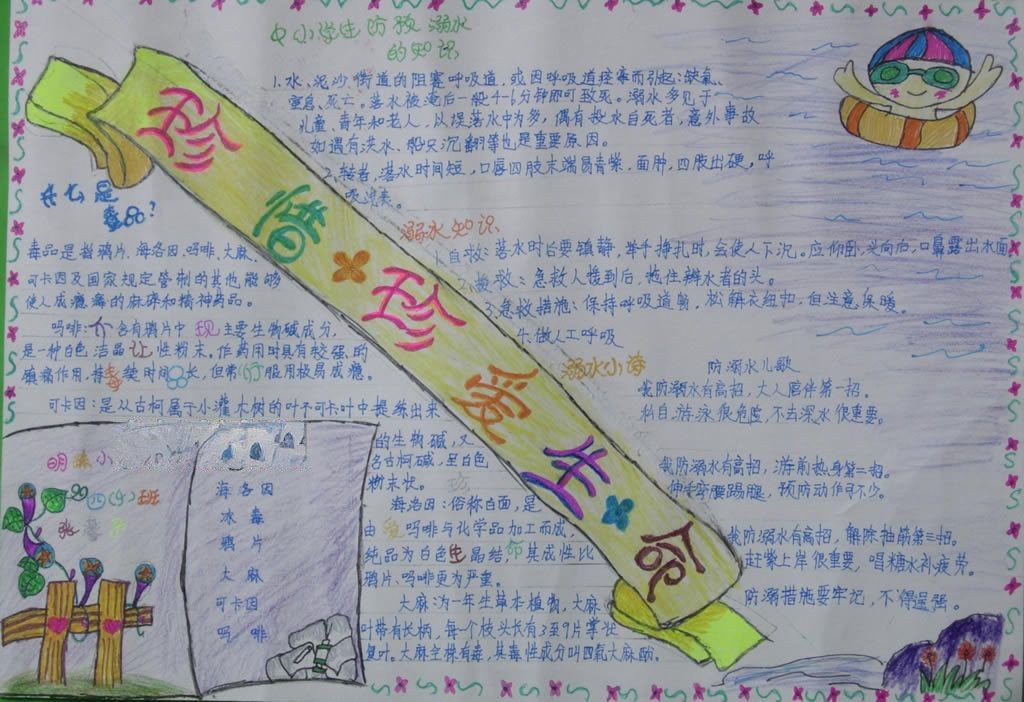 中小学生防孩溺水
的知识
1.水、泥沙 街道的阻塞呼吸道,或因呼吸道痉挛而引起:缺氧、
窒息、死亡。落水被淹后一般4-6分钟即可致死。溺水多见于
儿童、青年和老人,以误落水中为多,偶有投水自死者,意外事故
如遇有洪水、船只沉翻等也是重要原因。
2.转者,落水时间短,口唇四肢末端易青紫.面肿,四肢出硬,呼
吸浅表。
珍惜
珍爱
生命
什么是
毒品?
毒品是指鸦片.海洛因、吗啡、大麻、
可卡因及国家规定管制的其他能够
使人成瘾癖的麻碎和精神药品。
吗啡:个色有鸦片中 现主要生物碱成分,
是一种白色洁晶让性粉末。作药用时具有较强的
镇痛作用,持毒樊时间 长,但常 服用极易成瘾。
可卡因:是从古柯属于小灌木树的叶不可卡叶中提练出来
的生物碱,又
名古柯碱,呈白色
粉末状。
海洛因:俗称白面,是
由 爱 吗啡与化学品加工而成,
纯品为白色生晶结,命其成性比
鸦片.吗啡更为严重。
大麻:为一年生草本植物,大麻
叶带有长柄,每个枝头长有3至9片掌壮
复叶。大麻全株有毒,其毒性成分叫四氧大麻酚。
溺水知识
1.自救:落水时后要镇静,举手挣扎时,会使人下沉。应仰卧,头向后,口鼻露出水面
2.换救:急救人楼到后,抱住辫水者的头。
3.急救措施:保持呼吸道剪,松解衣纽扣,但注意保暖。
4.做人工呼吸
溺水小诗
防溺水儿歌
我防溺水有高招,大人陪伴第一招。
私自游泳很危险,不去深水很重要。
我防溺水有高招,游前热身第二招。
伸手弯腰踢腿,预防动作可不少。
我防溺水有高招,解除抽筋第三招。
赶紧上岸很重要,喝糖水补疲劳。
防溺措施要牢记,不得逞强。
明 小
四(4)班
张
海洛因
冰毒
鸦片
大麻
可卡因
吗啡